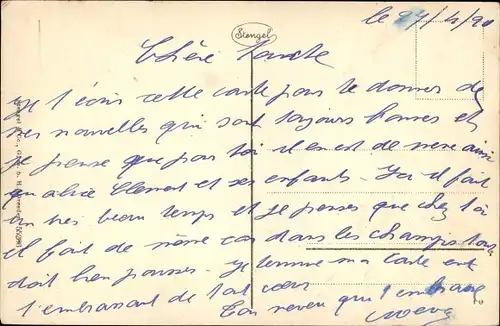 le 27/4/20
Stengel
Chère Tante
je t'écris cette carte pour te donner de
mes nouvelles qui sont toujours bonnes et
je pense que pour toi il en est de meme ainsi
qu'alice Clement et ses enfants. Ici il fait
un tres beau temps et je penses que chez toi
il fait de même car dans les champs tous
doit bien pousser. Je termine ma carte en
t'embrassant de tout cœur
Ton neveu qui t'embrasse